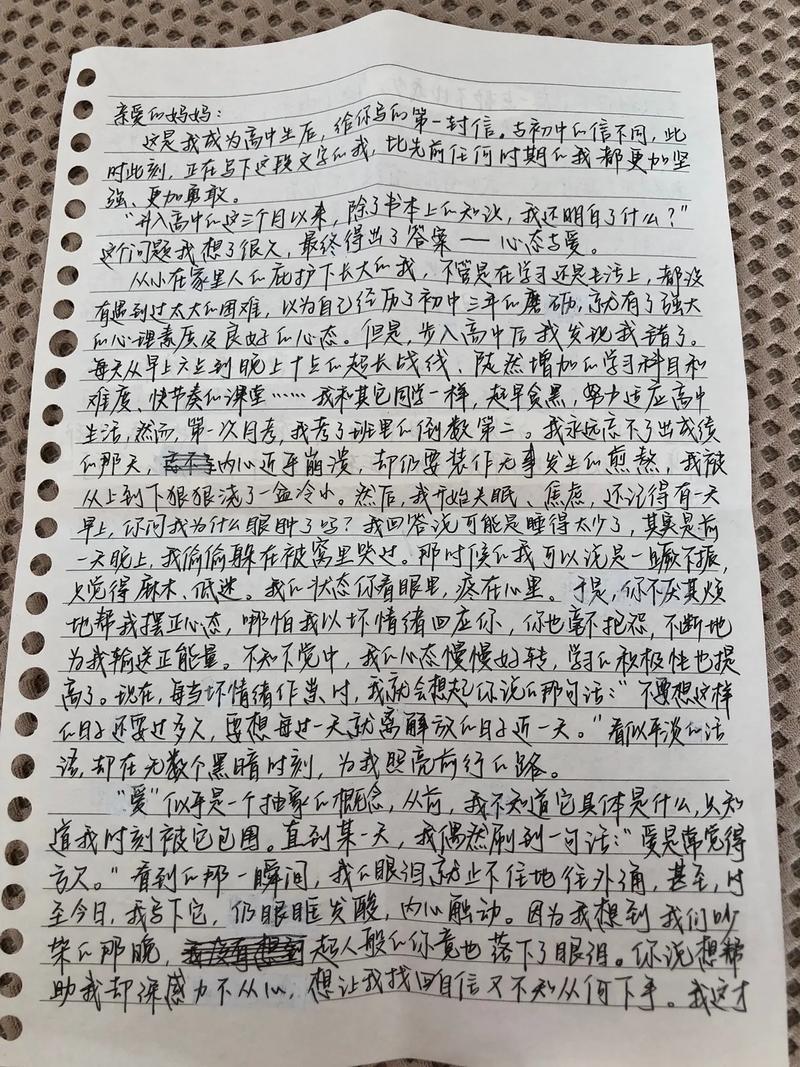 亲爱的妈妈：
这是我成为高中生后，给你写的第一封信。与初中的信不同，此
时此刻，正在写下这段文字的我，比先前任何时期的我都更加坚
强、更加勇敢。
“升入高中的这三个月以来，除了书本上的知识，我还明白了什么？”
这个问题我想了很久，最终得出了答案——心态与爱。
从小在家里人的庇护下长大的我，不管是在学习还是生活上，都没
有遇到过太大的困难，以为自己经历了初中三年的磨砺，就有了强大
的心理素质及良好的心态。但是，步入高中后我发现我错了。
每天从早上六点到晚上十点的超长战线、陡然增加的学习科目和
难度、快节奏的课堂……我和其它同学一样，起早贪黑，努力适应高中
生活，然而，第一次月考，我考了班里的倒数第二。我永远忘不了出成绩
的那天，内心近乎崩溃，却仍要装作无事发生的煎熬，我被
从上到下狠狠浇了一盆冷水。然后，我开始失眠、焦虑，还记得有一天
早上，你问我为什么眼肿了吗？我回答说可能是睡得太少了，其实是前
一天晚上，我偷偷躲在被窝里哭过。那时候的我可以说是一蹶不振，
只觉得麻木、低迷。我的状态你看眼里，疼在心里。于是，你不厌其烦
地帮我摆正心态，哪怕我以坏情绪回应你，你也毫不抱怨，不断地
为我输送正能量。不知不觉中，我的心态慢慢好转，学习的积极性也提
高了。现在，每当坏情绪作祟时，我就会想起你说的那句话：“不要想这样
的日子还要过多久，要想每过一天就离解放的日子近一天。”看似平淡的话
语，却在无数个黑暗时刻，为我照亮前行的路。
“爱”似乎是一个抽象的概念，从前，我不知道它具体是什么，只知
道我时刻被它包围。直到某一天，我偶然刷到一句话：“爱是常觉得
亏欠。”看到的那一瞬间，我的眼泪就止不住地往外涌，甚至，时
至今日，我写下它，仍眼眶发酸，内心触动。因为我想到我们吵
架的那晚，超人般的你竟也落下了眼泪。你说想帮
助我却深感力不从心，想让我找回自信又不知从何下手。我这才